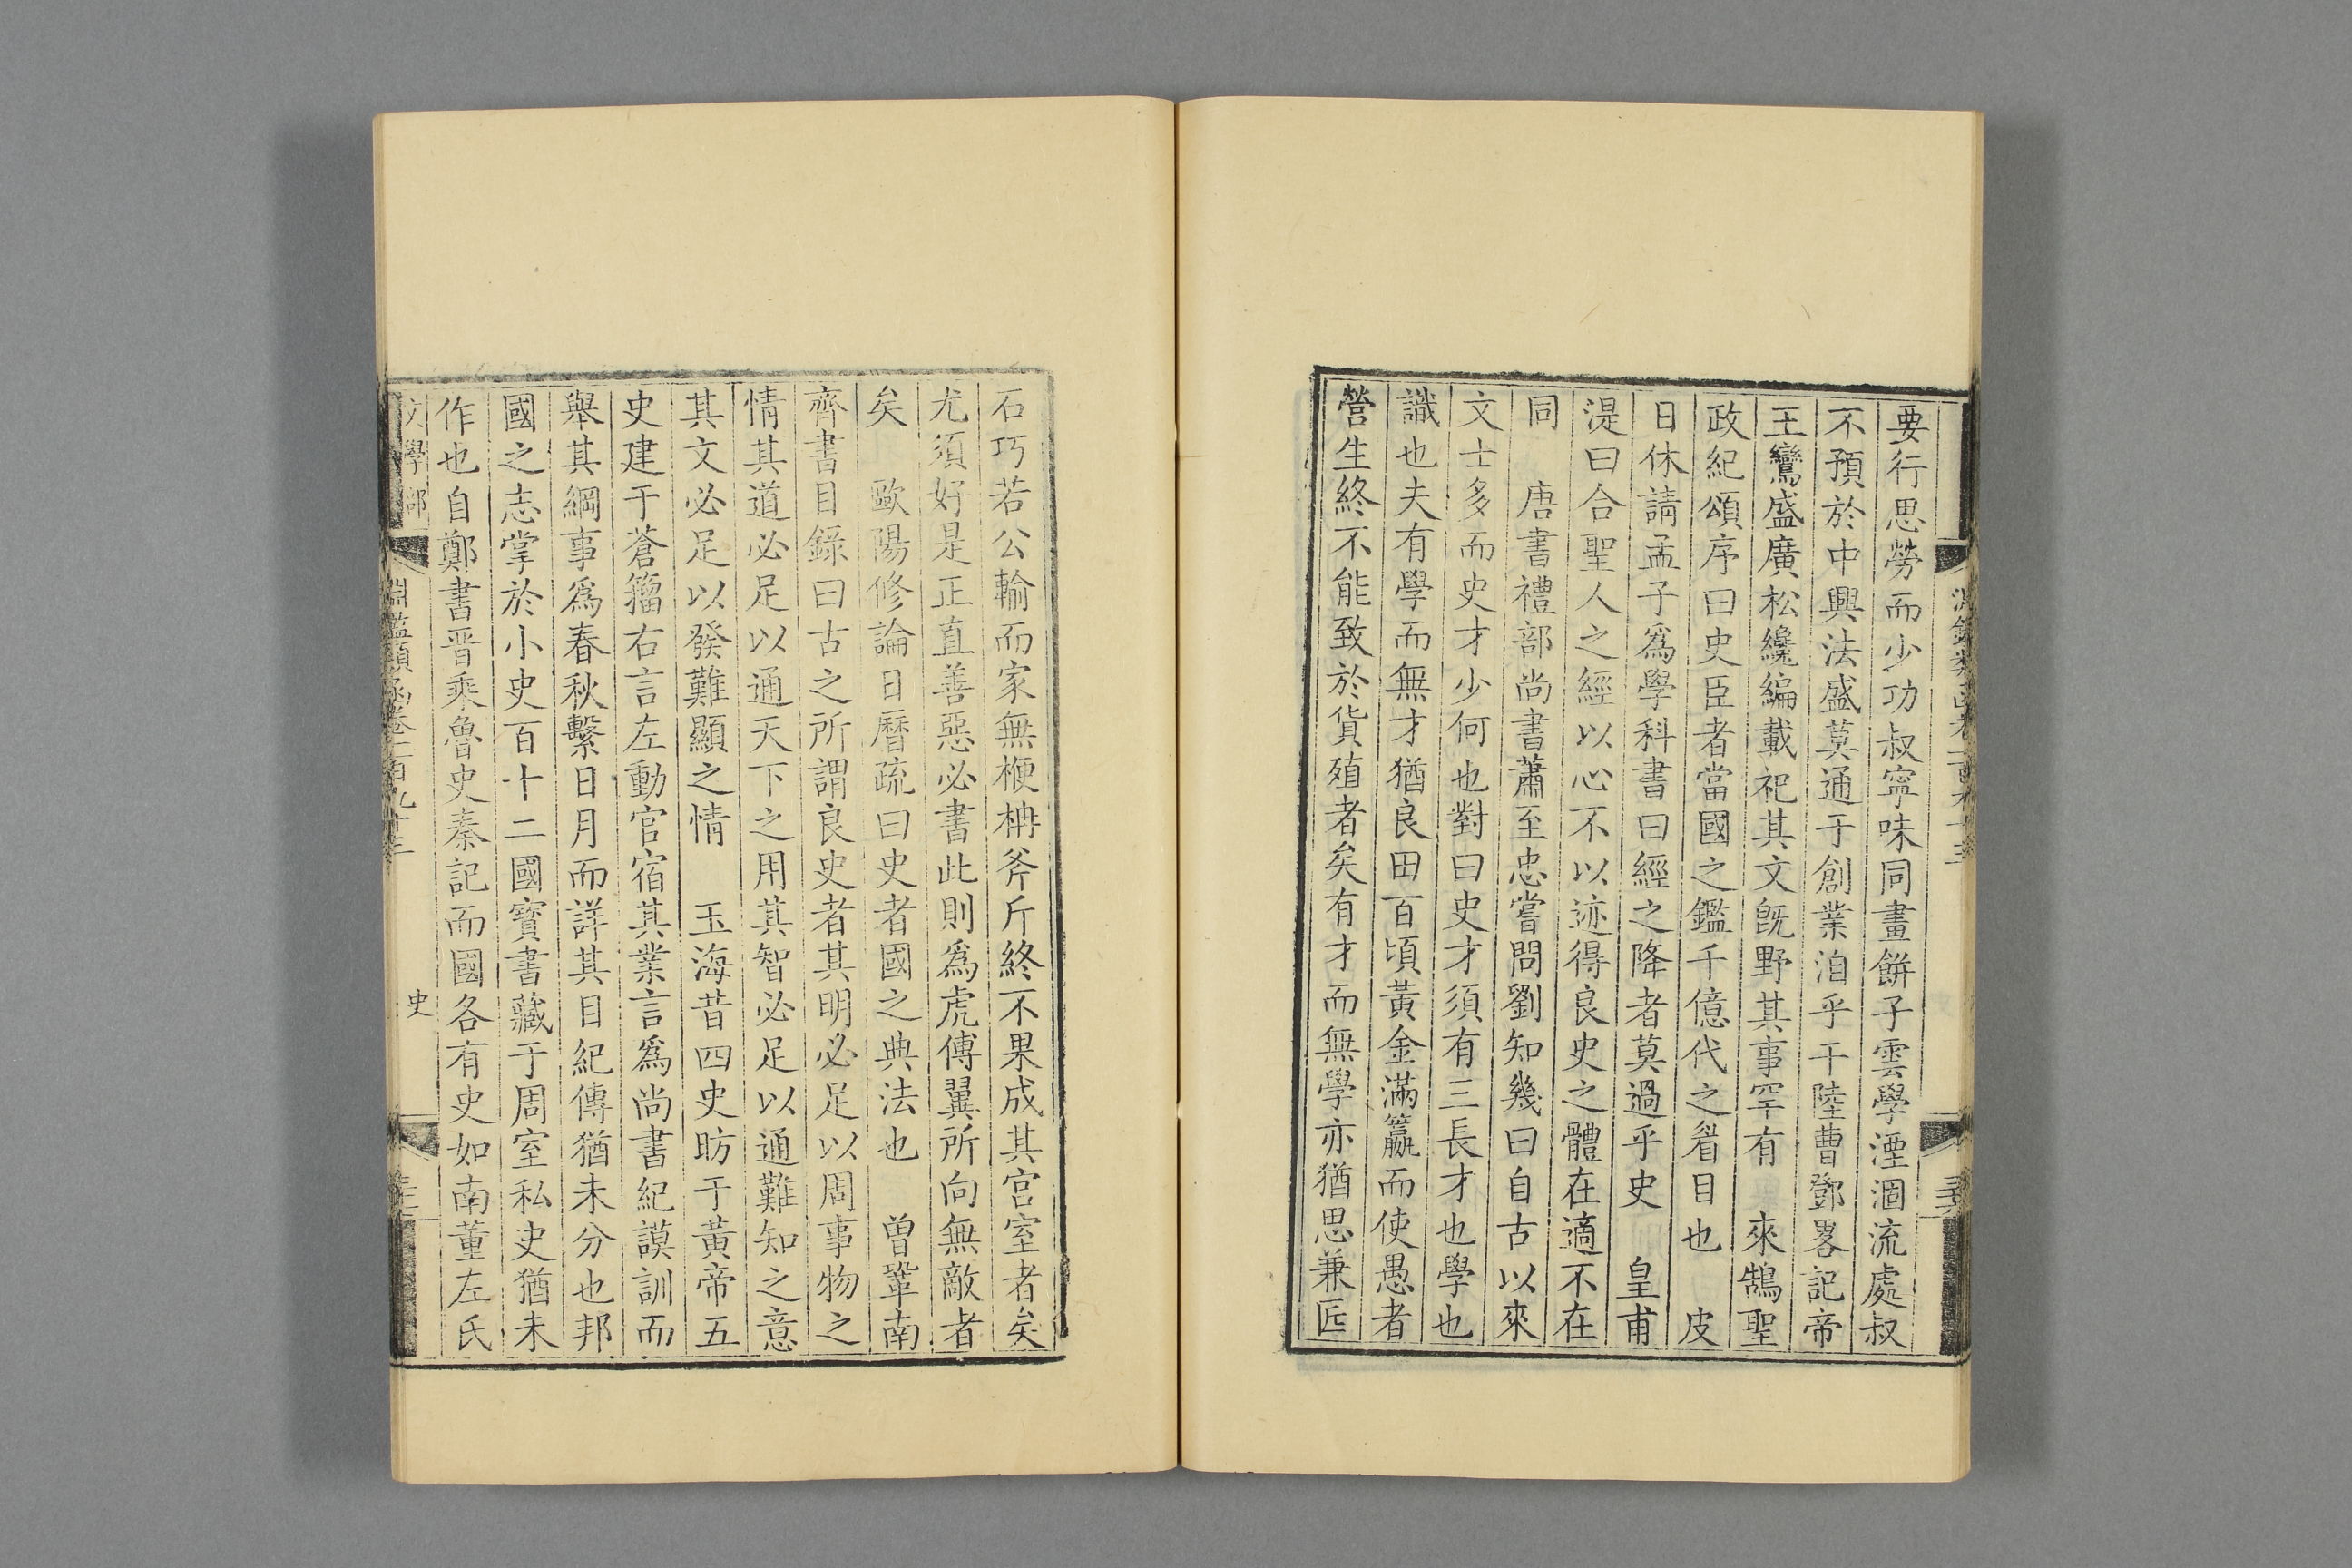 要行思勞而少功叔寧味同畫餅子雲學湮涸流處叔
不預於中興法盛莫通于創業洎乎干陸曹鄧畧記帝
王鸞盛廣松纔編載祀其文旣野其事罕有　來鵠聖
政紀頌序曰史臣者當國之鑑千億代之眢目也　皮
日休請孟子爲學科書曰經之降者莫過乎史　皇甫
湜曰合聖人之經以心不以迹得良史之體在適不在
同　唐書禮部尚書蕭至忠嘗問劉知幾曰自古以來
文士多而史才少何也對曰史才須有三長才也學也
識也夫有學而無才猶良田百頃黃金滿籯而使愚者
營生終不能致於貨殖者矣有才而無學亦猶思兼匠
石巧若公輸而家無楩柟斧斤終不果成其宮室者矣
尤須好是正直善惡必書此則爲虎傅翼所向無敵者
矣　歐陽修論日曆疏曰史者國之典法也　曾鞏南
齊書目錄曰古之所謂良史者其明必足以周事物之
情其道必足以通天下之用其智必足以通難知之意
其文必足以發難顯之情　玉海昔四史昉于黃帝五
史建于蒼籀右言左動官宿其業言爲尚書紀謨訓而
舉其綱事爲春秋繫日月而詳其目紀傳猶未分也邦
國之志掌於小史百十二國寶書藏于周室私史猶未
作也自鄭書晋乘魯史秦記而國各有史如南董左氏
文學部
淵鑑類函卷一百九十三
史